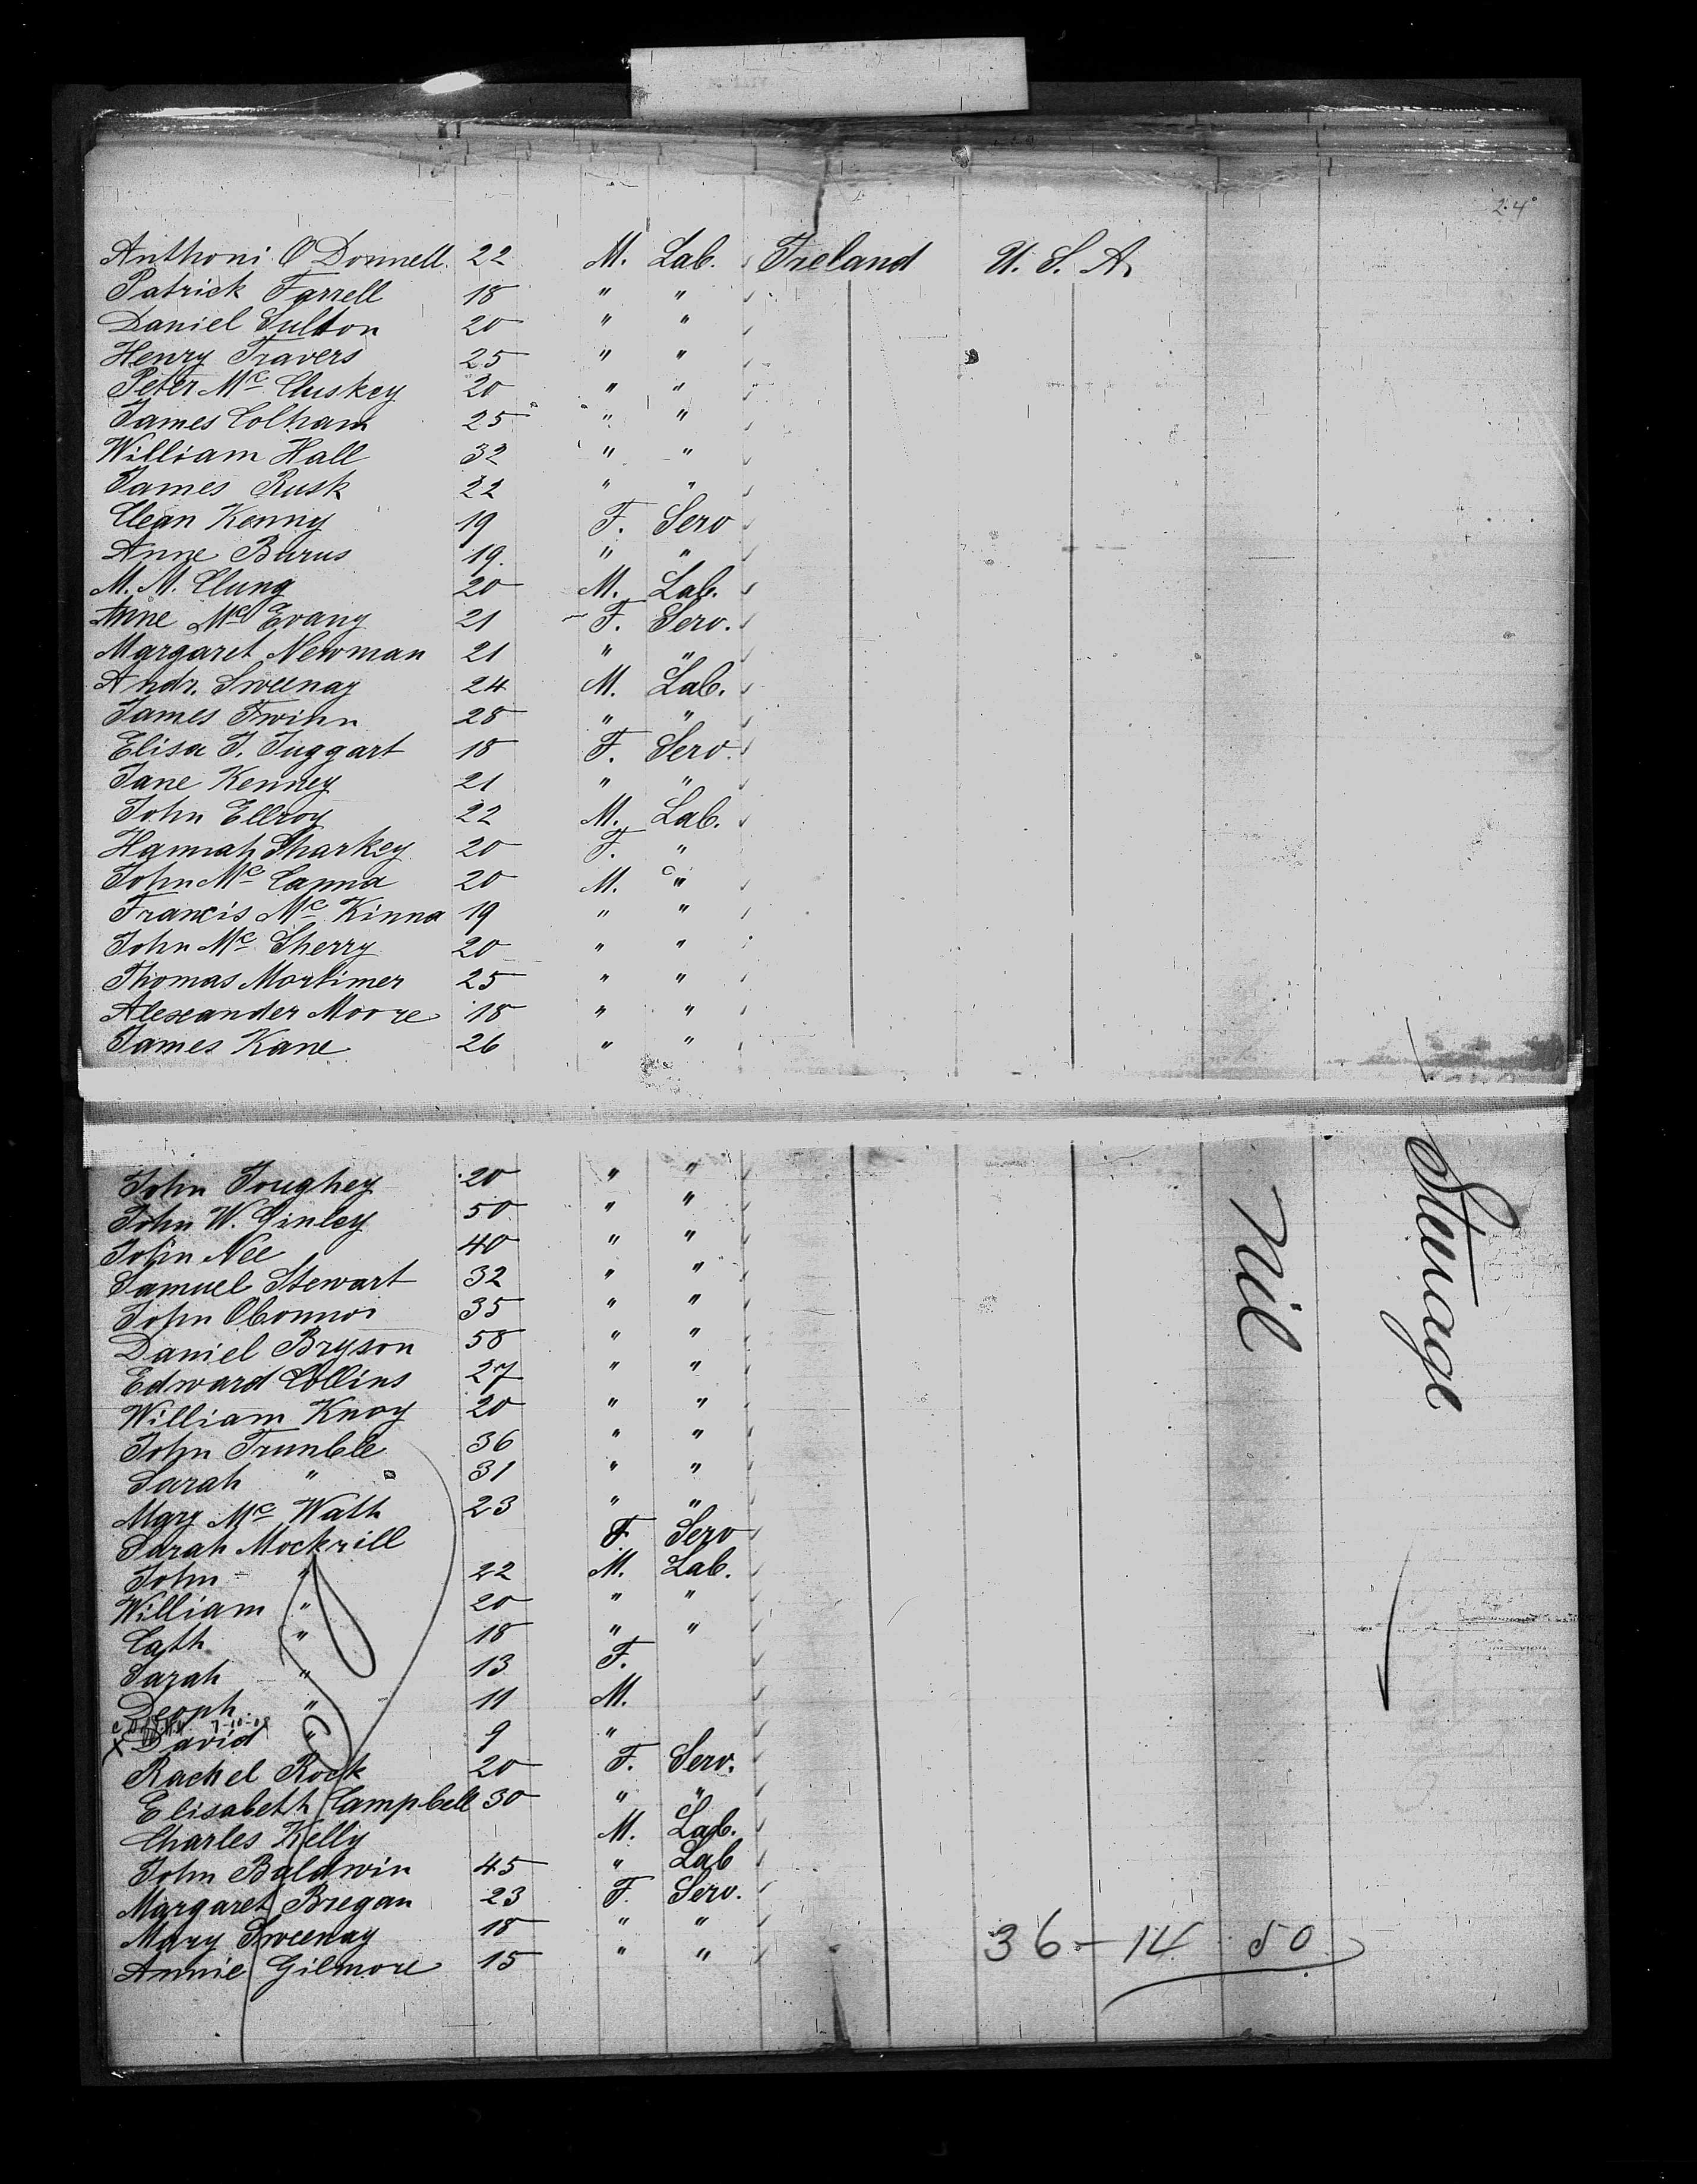 24
Anthoni O'Donnell. 22 M. Lab. Ireland U. S. A.
Patrick Farrell 18 " "
Daniel Sulton 20 " "
Henry Travers 25 " "
Peter Mc Cluskey 20 " "
James Colham 25 " "
William Hall 32 " "
James Rusk 22 " "
Clean Kenny 19 F. Serv
Anne Burus 19. " "
M. M. Clung 20 M. Lab.
Anne Mc Evany 21 F. Serv.
Margaret Newman 21 " "
Andr. Sweenay 24 M. Lab.
James Irwinn 28 " "
Elisa J. Tuggart 18 F. Serv.
Jane Kenney 21 " "
John Ellroy 22 M. Lab.
Hannah Sharkey 20 F. "
John Mc Canna 20 M. "
Francis Mc Kinna 19 " "
John Mc Sherry 20 " "
Thomas Mortimer 25 " "
Alexander Moore 18 " "
James Kane 26 " "
John Toughey 20 " "
John W. Ginley 50 " "
John Nee 40 " "
Samuel Stewart 32 " "
John OConnor 35 " "
Daniel Bryson 58 " "
Edward Collins 27 " "
William Knoy 20 " "
John Trumble 36 " "
Sarah " 31 " "
Mary Mc Wath 23 " "
Sarah Mockrill F. Serv
John " 22 M. Lab.
William " 20 " "
Cath " 18 " "
Sarah " 13 F.
Deoph. " 11 M.
7-10-09
X David " 9 "
Rachel Rock 20 F. Serv.
Elisabeth Campbell 30 " "
Charles Kelly M. Lab.
John Baldwin 45 " Lab
Margaret Bregan 23 F. Serv.
Mary Sweenay 18 " "
Annie Gilmore 15 " "
36 - 14 50
Nil
Steerage